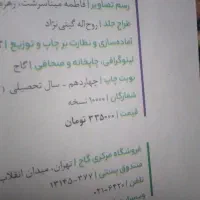 رسم تصاویر | فاطمه میناسرشت، زهره
طراح جلد | روح‌اله گیتی‌نژاد
آماده‌سازی و نظارت بر چاپ و توزیع |
لیتوگرافی، چاپخانه و صحافی | گاج
نوبت چاپ | چهاردهم - سال تحصیلی
شمارگان | ۱۰۰۰۰ نسخه
قیمت | ۳۳۵۰۰۰ تومان
فروشگاه مرکزی گاج | تهران- میدان انقلاب
صندوق پستی | ۳۷۷-۱۳۱۴۵
تلفن | ۶۴۲۰-۰۲۱